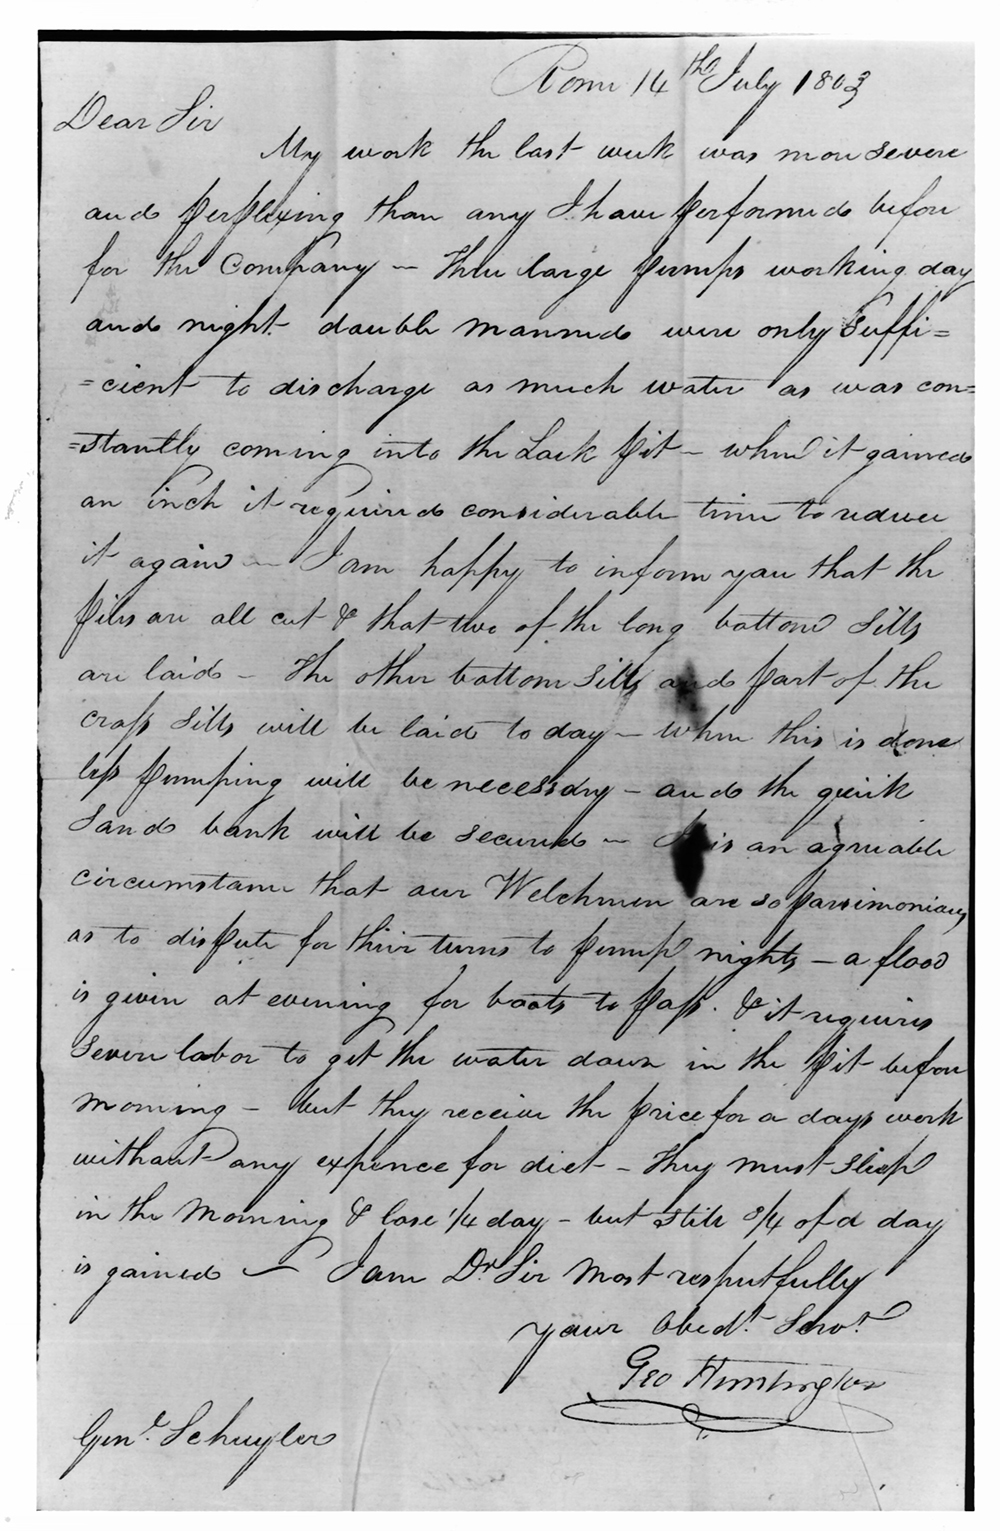 Rome 14th July 1803
Dear Sir
My work the last week was more severe
and perplexing than any I have performed before
for the Company — Three large pumps working day
and night double manned were only suffi=
=cient to discharge as much water as was con=
=stantly coming into the Lock pit — when it gained
an inch it required considerable time to reduce
it again — I am happy to inform you that the
piles are all cut & that two of the long bottom Sills
are laid — The other bottom Sills and part of the
cross Sills will be laid to day — when this is done
less pumping will be necessary — and the quick
Sand bank will be secured — It is an agreeable
circumstance that our Welchmen are so parsimonious
as to dispute for their turns to pump nights — a flood
is given at evening for boats to pass. & it requires
severe labor to get the water down in the pit before
morning — but they receive the price for a days work
without any expence for diet — They must sleep
in the Morning & lose 1/4 day — but still 3/4 of a day
is gained — I am Dr Sir Most respectfully
your Obedt. Servt.
Geo Huntington
Genl. Schuyler